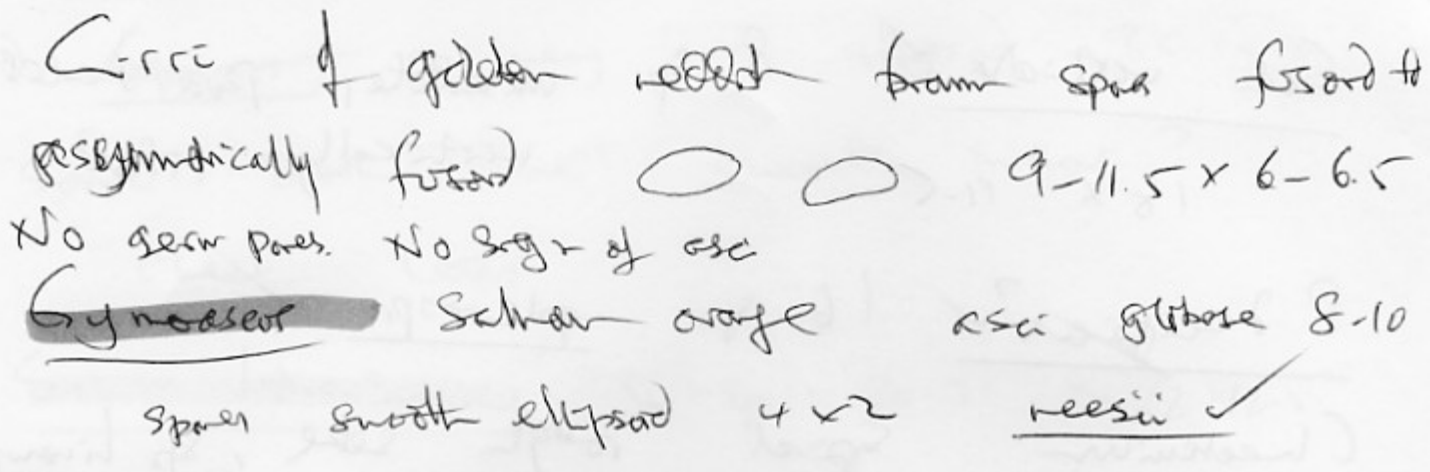 Cirri of golden reddish brown spores fusoid to
assymmetrically fusoid 9-11.5 x 6-6.5
No germ pores. No sign of asci
Gymnoascus Salmon orange asci globose 8-10
spores smooth ellipsoid 4 x 2 reesii ✓